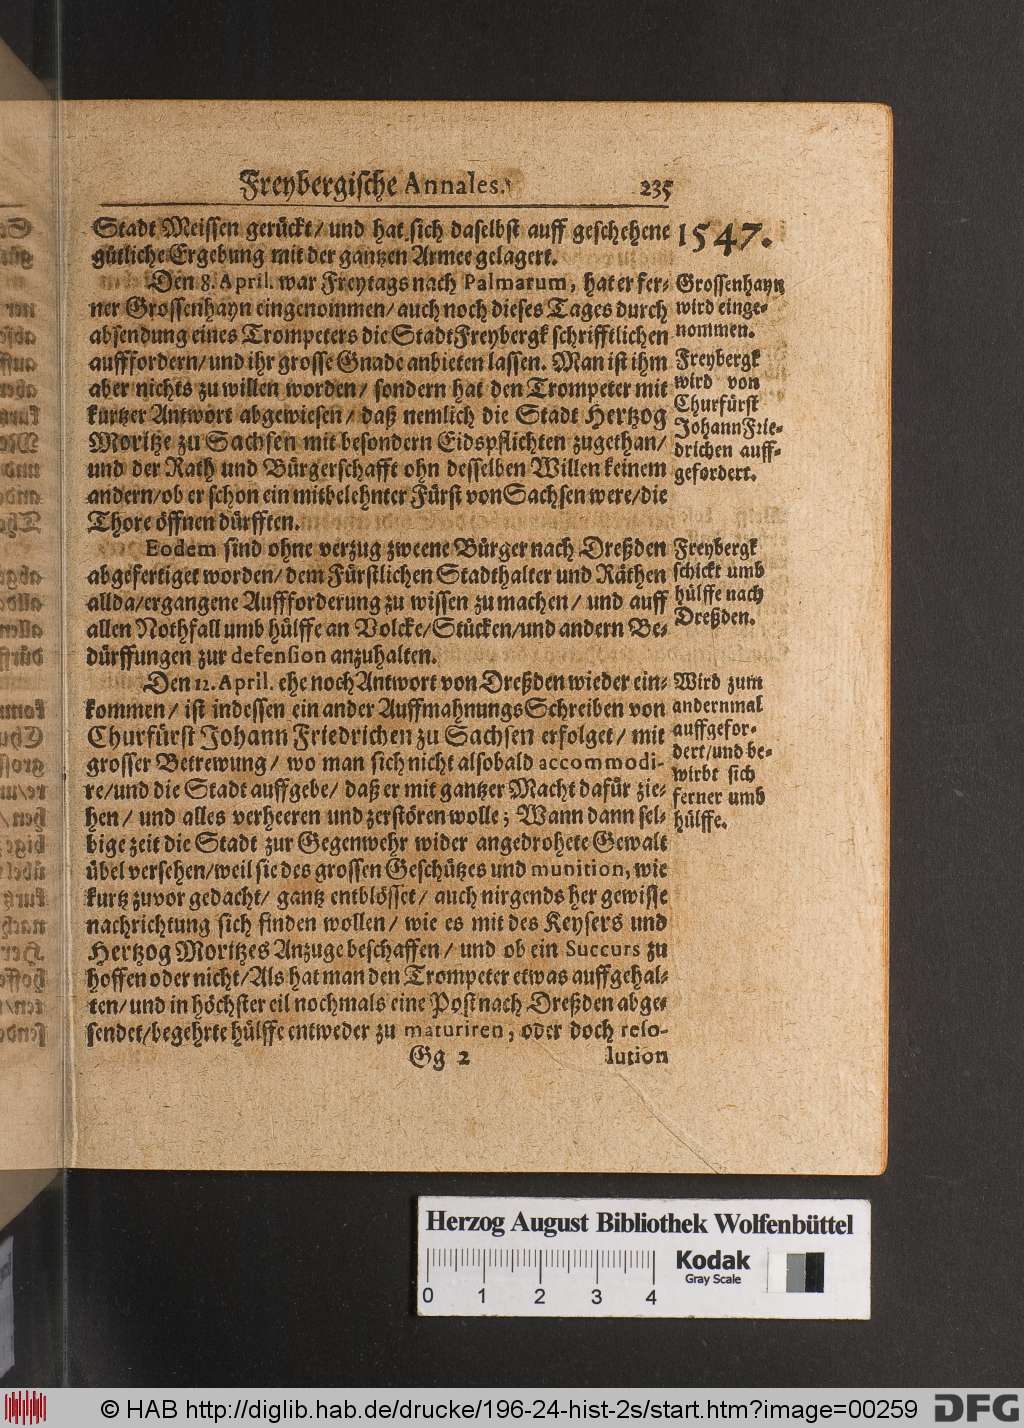 Freybergische Annales. 235
Stadt Meissen gerückt/ und hat sich daselbst auff geschehene
gütliche Ergebung mit der gantzen Armee gelagert.
Den 8. April. war Freytags nach Palmarum, hat er fer-
ner Grossenhayn eingenommen/ auch noch dieses Tages durch
absendung eines Trompeters die Stadt Freybergk schrifftlichen
aufffordern/ und ihr grosse Gnade anbieten lassen. Man ist ihm
aber nichts zu willen worden/ sondern hat den Trompeter mit
kurtzer Antwort abgewiesen/ daß nemlich die Stadt Hertzog
Moritze zu Sachsen mit besondern Eidspflichten zugethan/
und der Rath und Bürgerschafft ohn desselben Willen keinem
andern/ ob er schon ein mitbelehnter Fürst von Sachsen were/ die
Thore öffnen dürfften.
Eodem sind ohne verzug zweene Bürger nach Dreßden
abgefertiget worden/ dem Fürstlichen Stadthalter und Räthen
allda/ ergangene Auffforderung zu wissen zu machen/ und auff
allen Nothfall umb hülffe an Volcke/ Stücken/ und andern Be-
dürffungen zur defension anzuhalten.
Den 12. April. ehe noch Antwort von Dreßden wieder ein-
kommen/ ist indessen ein ander Auffmahnungs Schreiben von
Churfürst Johann Friedrichen zu Sachsen erfolget/ mit
grosser Betrewung/ wo man sich nicht alsobald accommodi-
re/ und die Stadt auffgebe/ daß er mit gantzer Macht dafür zie-
hen/ und alles verheeren und zerstören wolle; Wann dann sel-
bige zeit die Stadt zur Gegenwehr wider angedrohete Gewalt
übel versehen/ weil sie des grossen Geschützes und munition, wie
kurtz zuvor gedacht/ gantz entblösset/ auch nirgends her gewisse
nachrichtung sich finden wollen/ wie es mit des Keysers und
Hertzog Moritzes Anzuge beschaffen/ und ob ein Succurs zu
hoffen oder nicht/ Als hat man den Trompeter etwas auffgehal-
ten/ und in höchster eil nochmals eine Post nach Dreßden abge-
sendet/ begehrte hülffe entweder zu maturiren, oder doch reso-
Gg 2 lution
1547.
Grossenhayn
wird einge-
nommen.
Freybergk
wird von
Churfürst
Johann Frie-
drichen auff-
gefordert.
Freybergk
schickt umb
hülffe nach
Dreßden.
Wird zum
andernmal
auffgefor-
dert/ und be-
wirbt sich
ferner umb
hülffe.
Herzog August Bibliothek Wolfenbüttel
Kodak
Gray Scale
0 1 2 3 4
© HAB http://diglib.hab.de/drucke/196-24-hist-2s/start.htm?image=00259
DFG